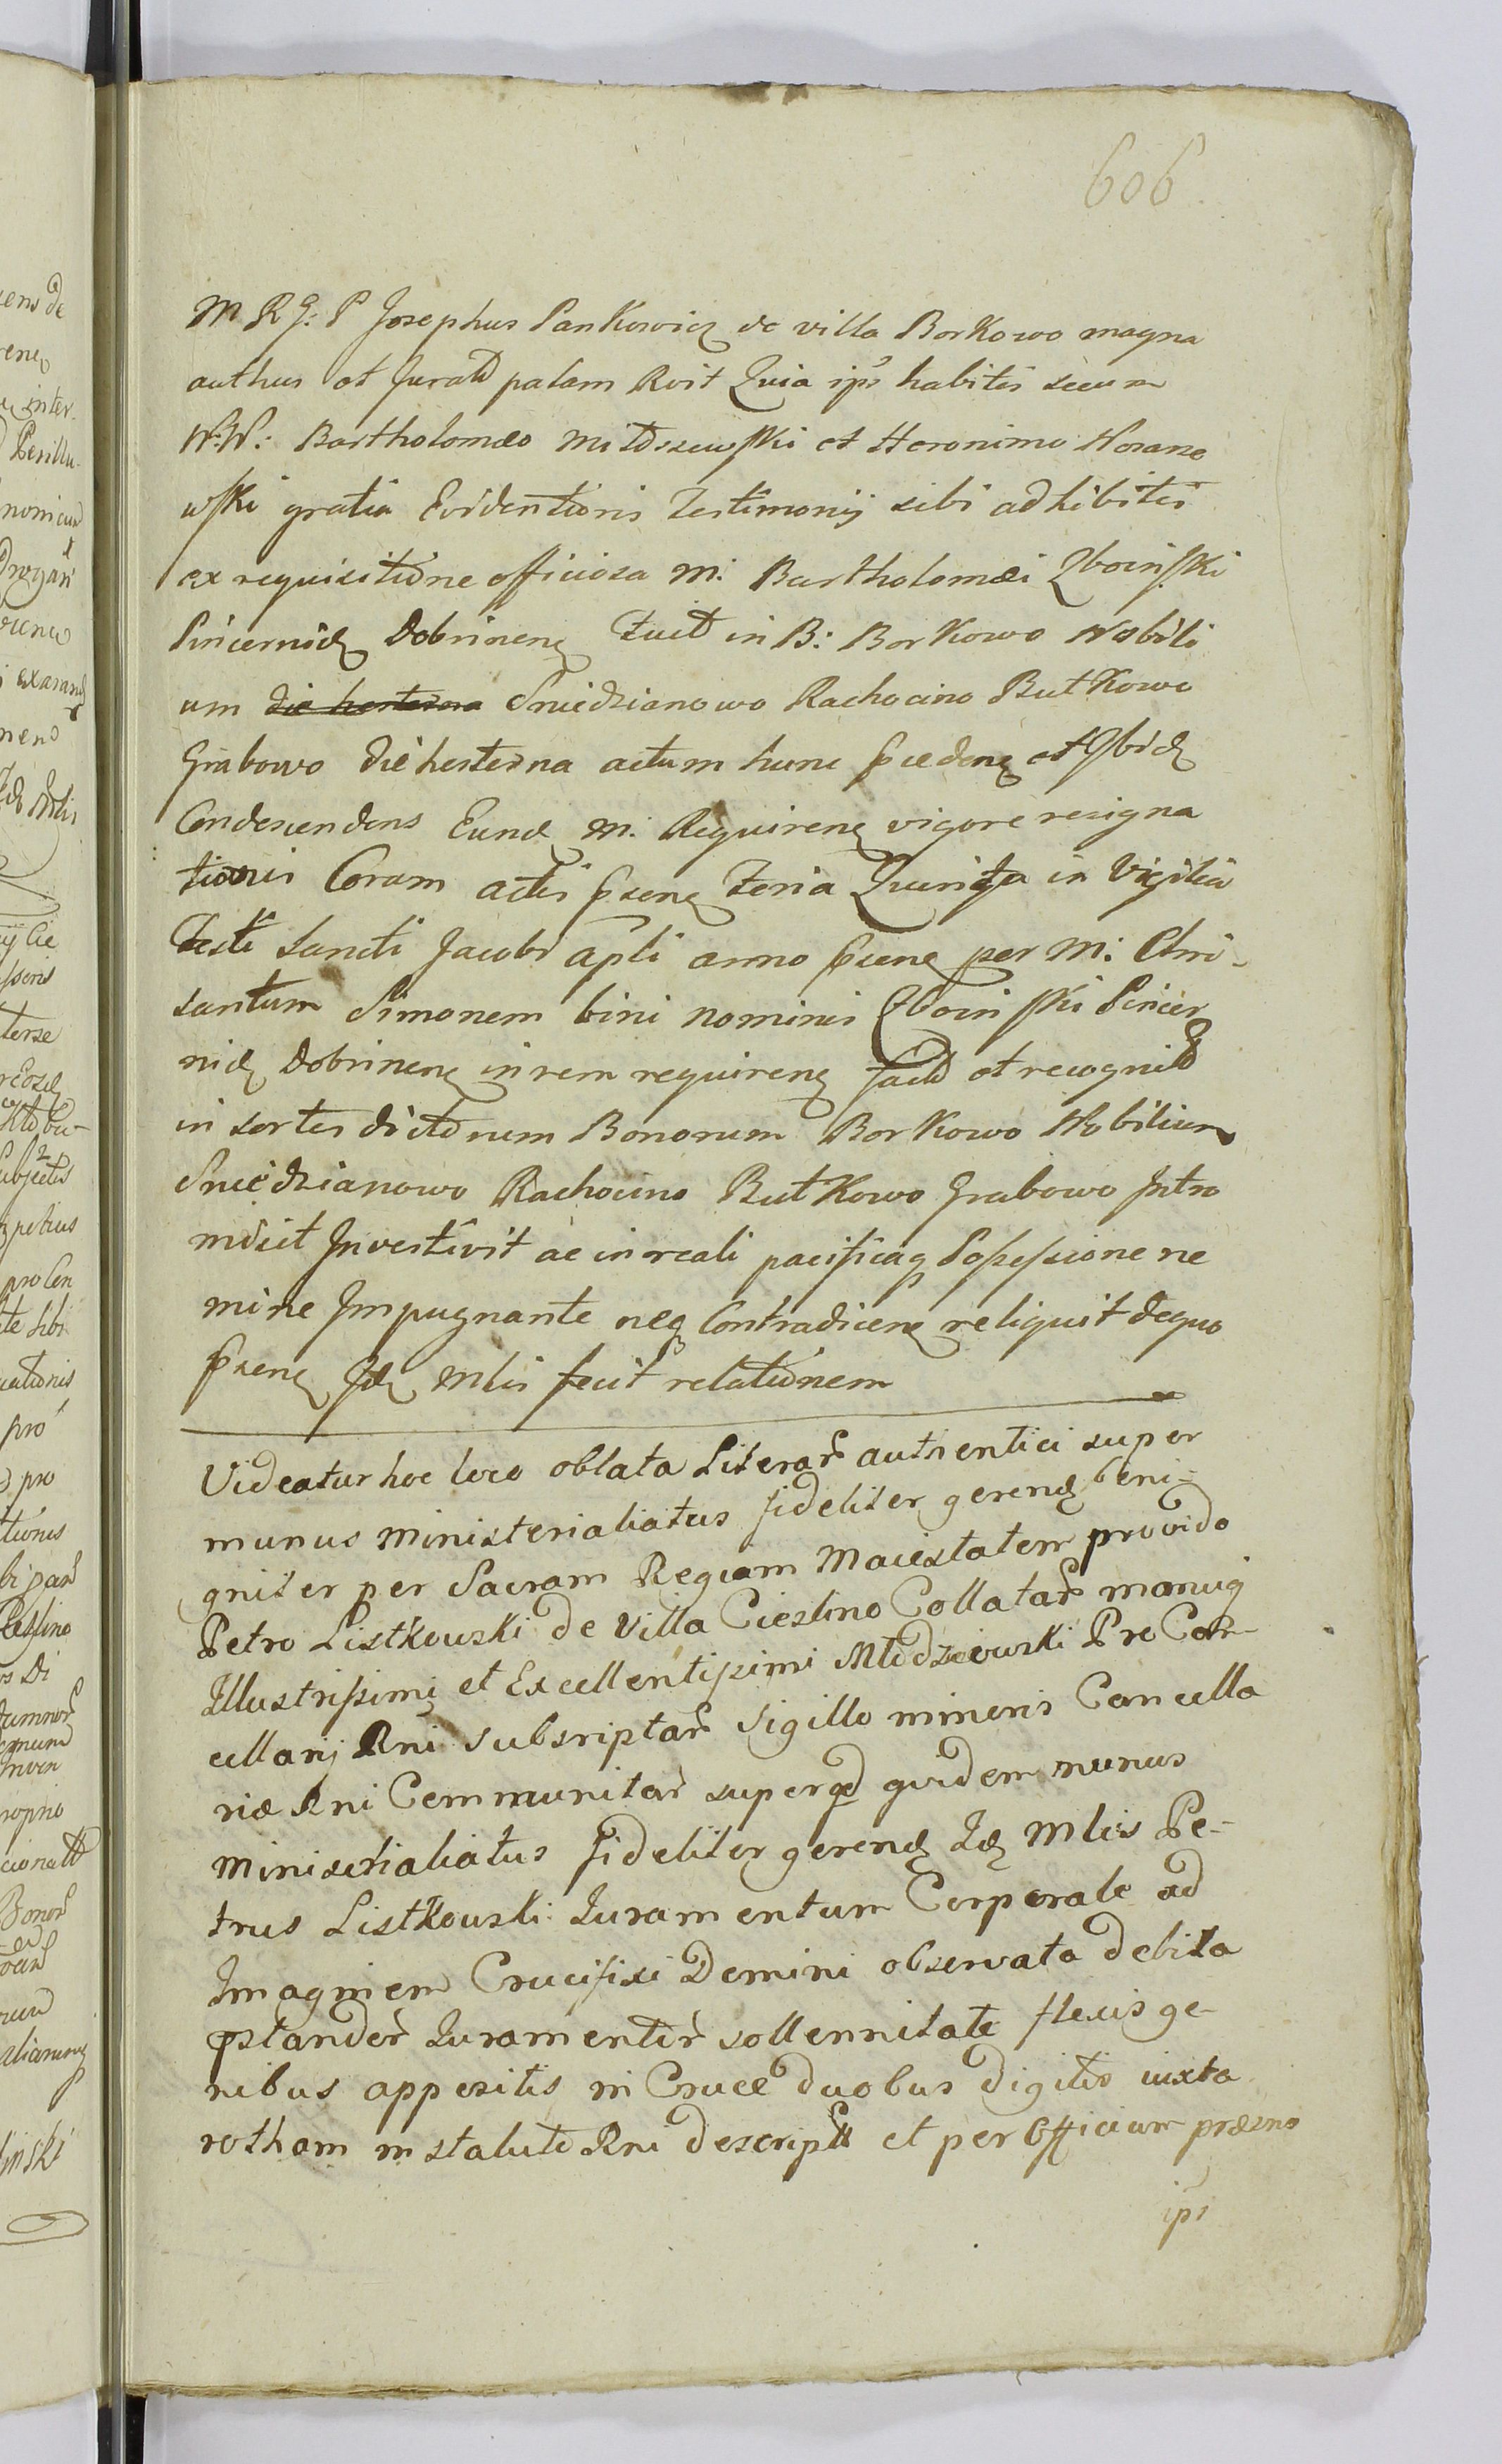 606
M R G: P Josephus Pankowicz de villa Borkowo magna
authus et Jurato palam Rvit Quia ips habitis secum
N:N: Bartholomæo Miloszewski et Heronimo Morano
wski gratia Evidentioris Testimonij sibi adhibitis
ex requisitione officiosa M: Bartholomæi Zboinski
Pincernidæ Dobrinen fuit in B: Borkowo Nobili
um die hesterna Sniedzianowo Rachocino Butkowo
Grabowo die hesterna actum hunc præceden et Ibid
Condescendens Eund M: Requiren vigore resigna
tionis Coram actis præsen feria Quinta in Vigilia
Festi Sancti Jacobi apli anno præsen per M: Chri-
santum Simonem bini nominis Zboinski Pincer
nid Dobrinen in rem requiren fact et recognit
in sortes dictorum Bonorum Borkowo Nobilium
Sniedzianowo Rachocino Butkowo Grabowo Intro
misit Investivit ac in reali pacificaq Possessione ne
mine Impugnante neq Contradicen reliquit de quo
præsen Id Mlis fecit relationem
Videatur hoc loco oblata Literar autnentici super
munus ministerialiatus fideliter gerend beni-
gniter per Sacram Regiam Maiestatem provido
Petro Listkowski de Villa Cieslino Collatar manuq
Illustrissimi et Excellentissimi Młodziewski Pro Can-
cellarij Rni Subsriptar Sigillo minoris Cancella
riæ Rni Communitar super qd quidem munus
ministerialiatus fideliter gerend Id Mlis Pe-
trus Listkowski Juramentum Corporale ad
Imaginem Crucifixi Domini observata debita
præstander Juramentor sollennitate flexis ge-
nibus appositis in Cruce duobus digitis iuxta
rotham in statuto Rni descript et per Officium præsns
ips